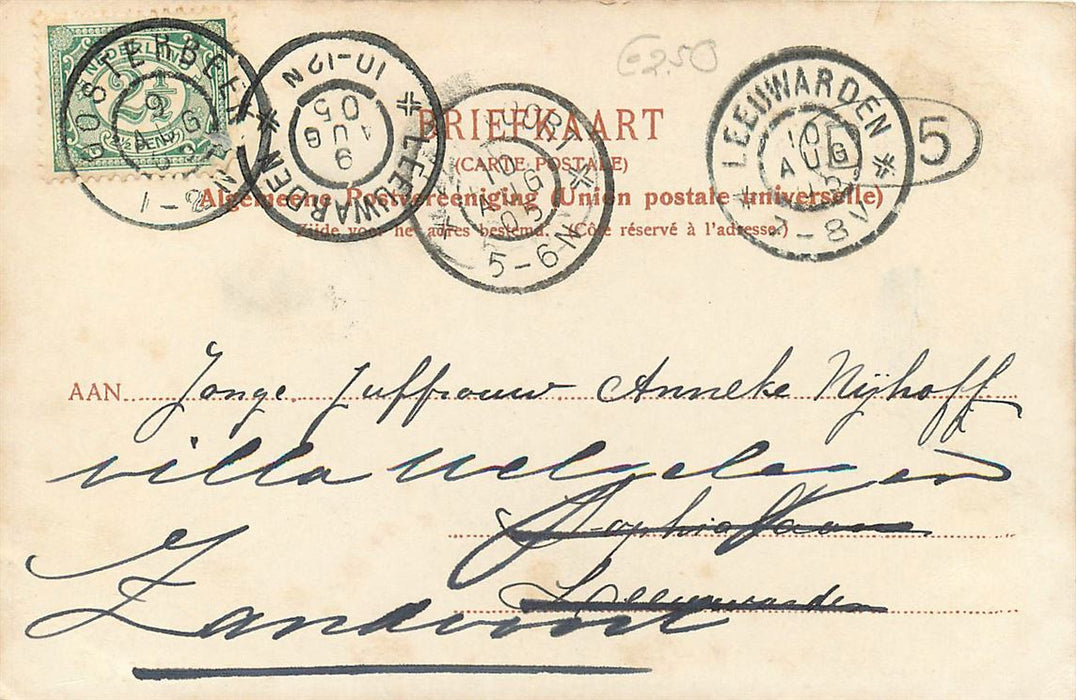 NEDERLAND
2½
OOSTERBEEK
9 AUG 05
1-2N
LEEUWARDEN
9 AUG 05
10-12N
10 AUG 05
5-6N
LEEUWARDEN
10 AUG 05
7-8V
5
6250
BRIEFKAART
(CARTE POSTALE)
Algemeene Postvereeniging (Union postale universelle)
Zijde voor het adres bestemd. (Côté réservé à l'adresse.)
AAN Jonge Juffrouw Anneke Nijhoff
villa Welgelegen
Sophialaan
Leeuwarden
Zandvoort